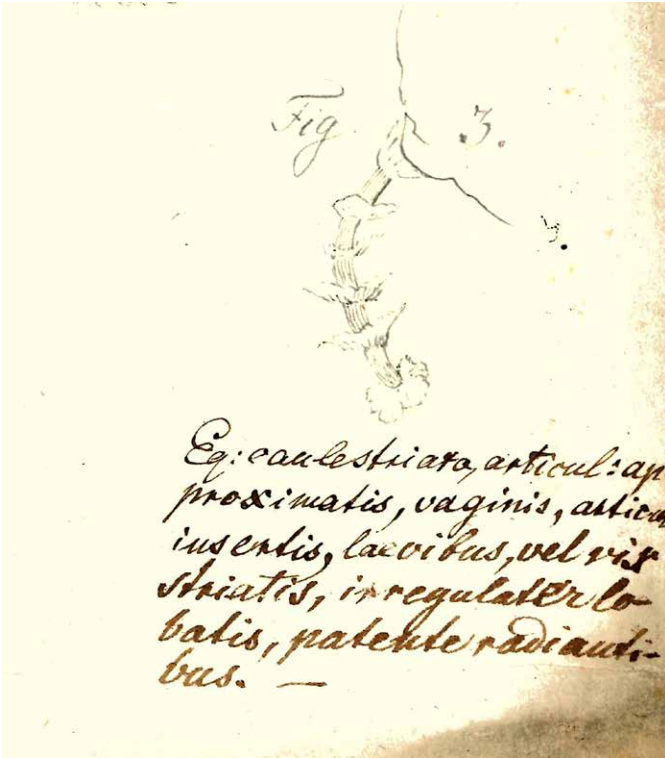 Fig. 3.
Eq: caule striato, articul: ap
proximatis, vaginis, articu
insertis, laevibus, vel vix
striatis, irregulater lo-
batis, patente radianti-
bus. —